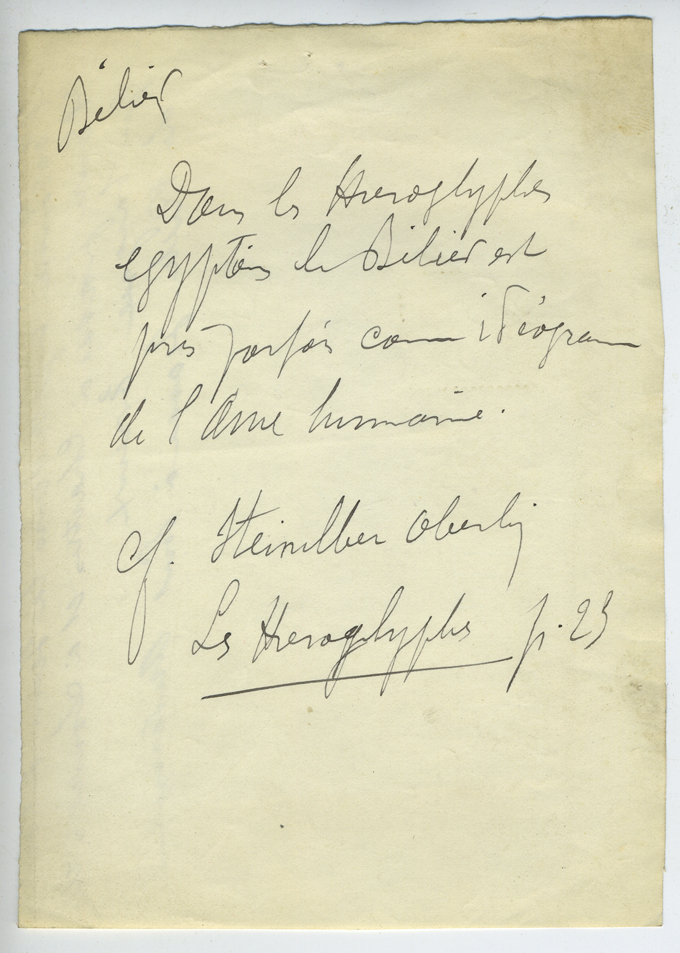 Bélier
Dans les Hieroglyphes
egyptiens le Bélier est
pris parfois comme idéogramme
de l'Ame humaine.
cf. Steinilber Oberlin
Les Hieroglyphes p. 23